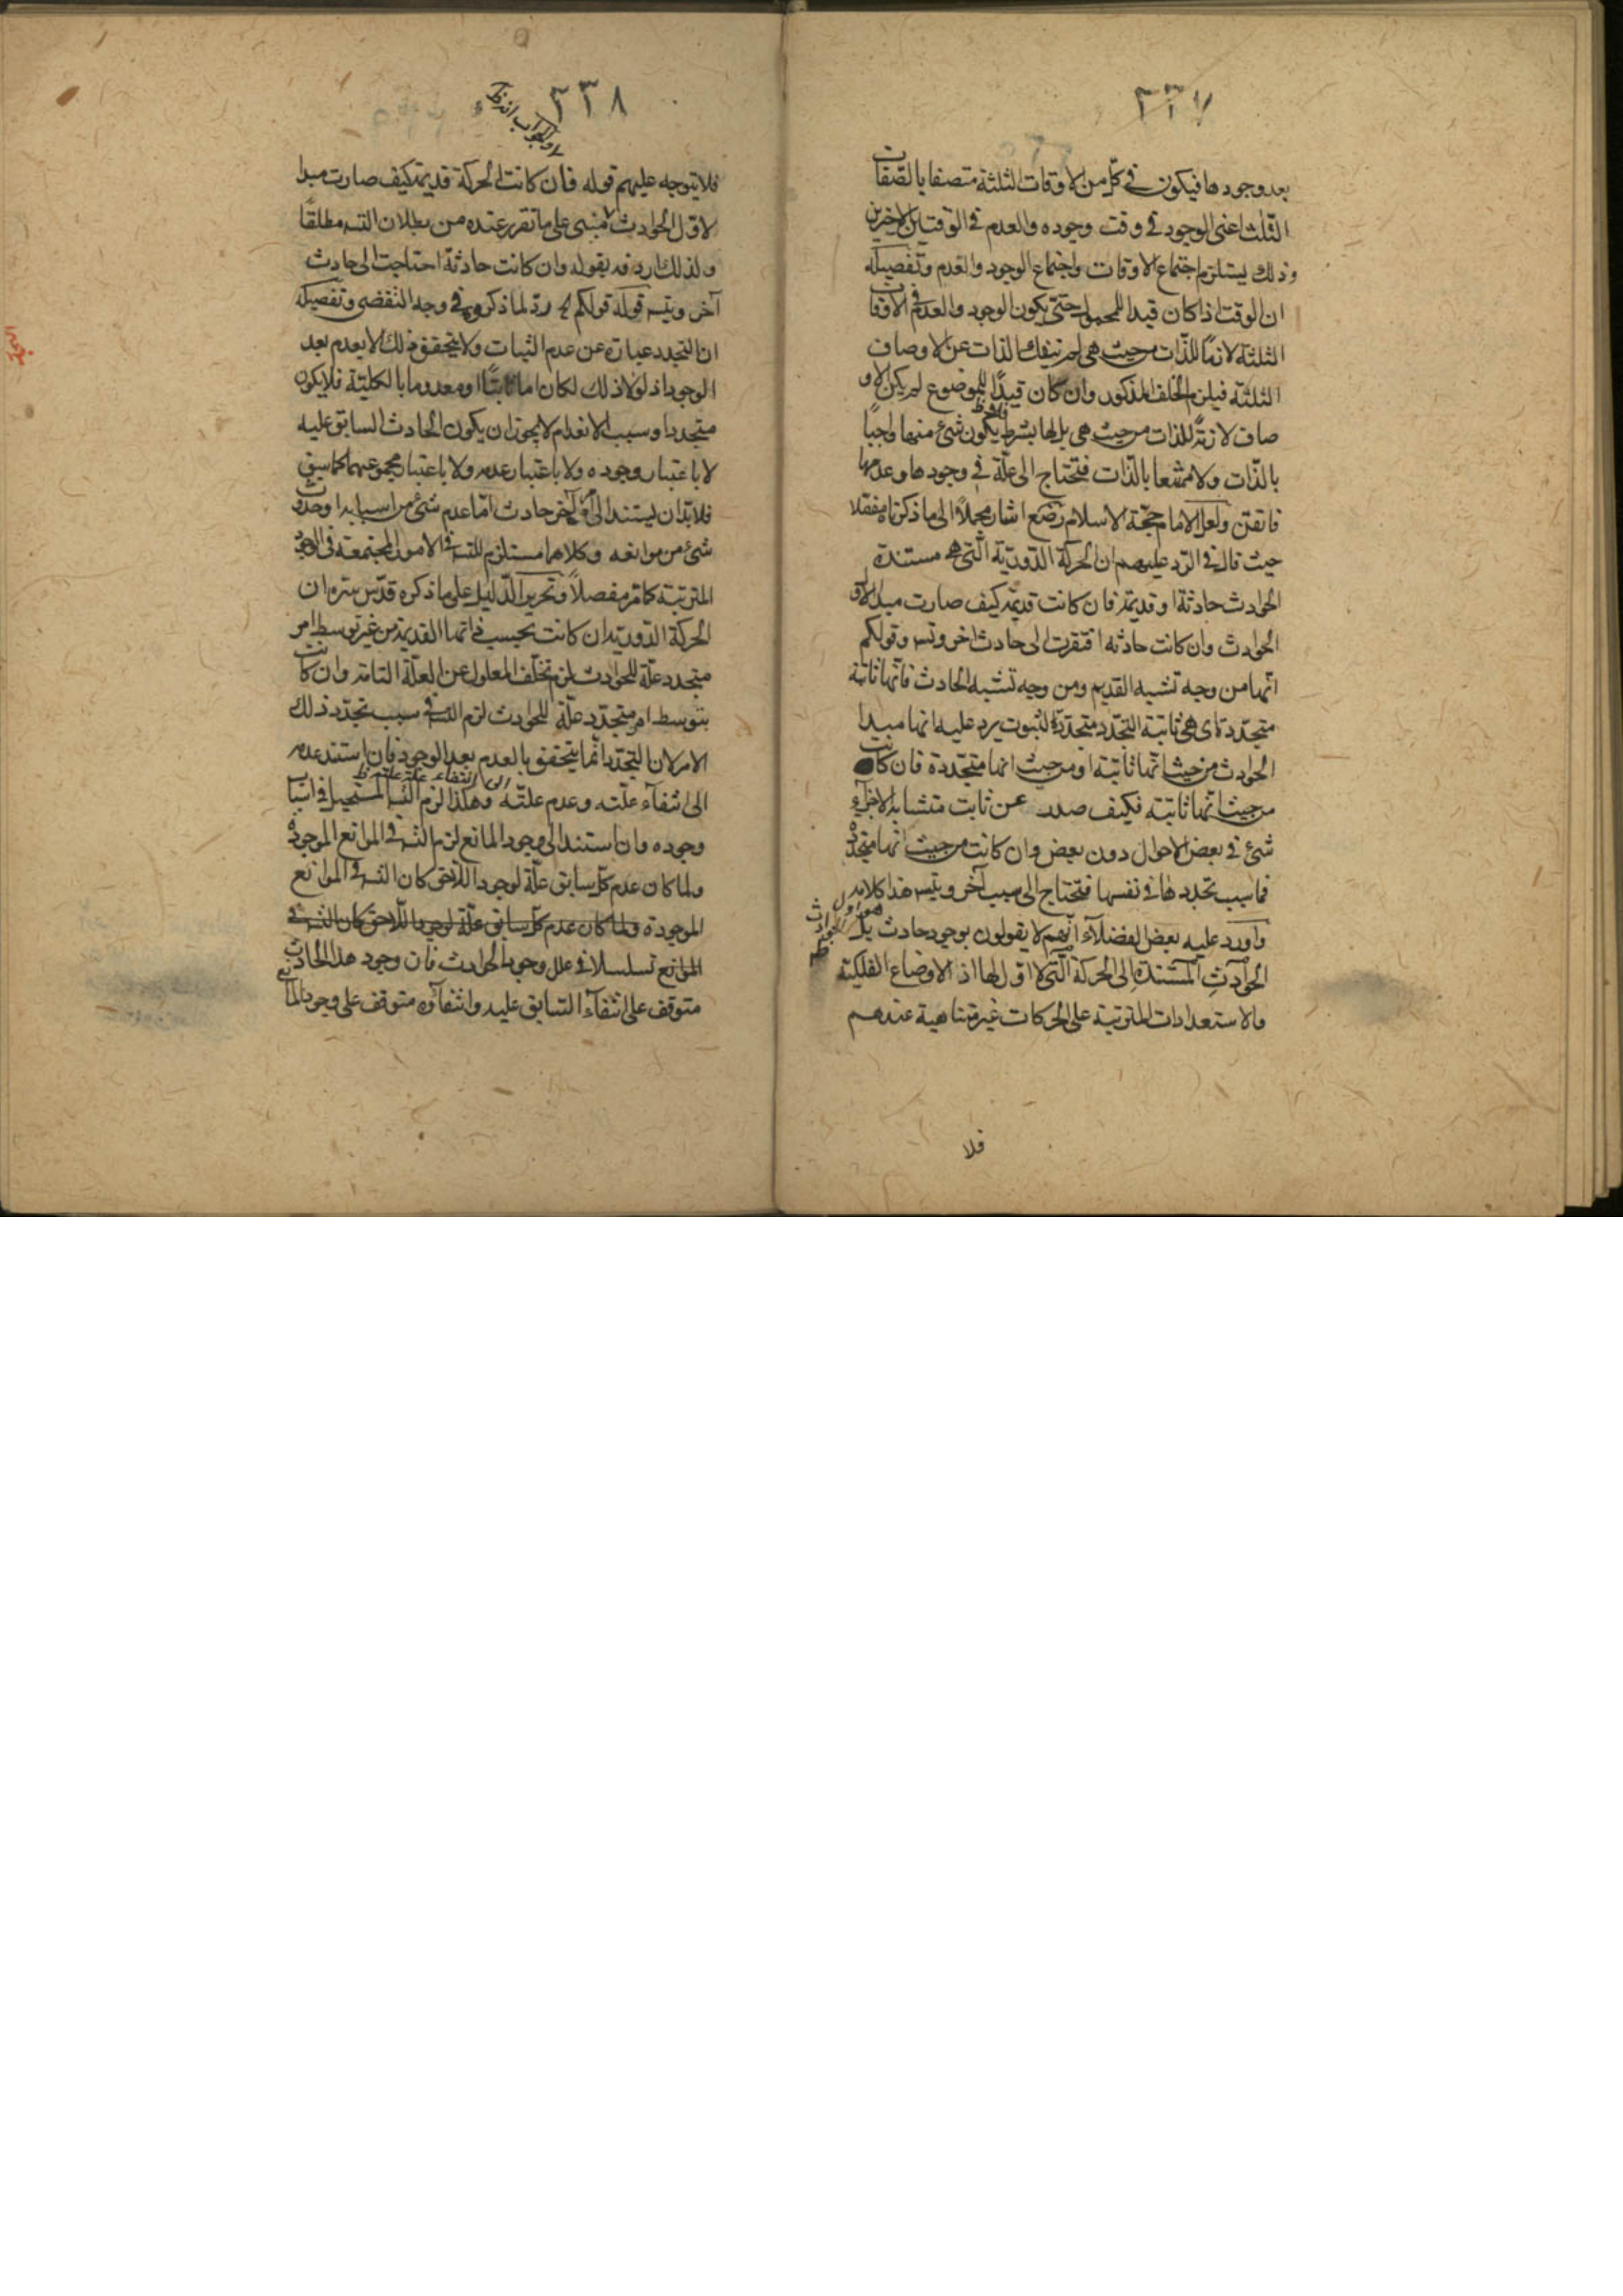 ٣٣٧
بعد وجودها فيكون في كل من الاوقات الثلثة متصفا بالصفات
الثلث اعنى الوجود في وقت وجوده والعدم في الوقتين الاخيرين
وذلك يستلزم اجتماع الاوقات واجتماع الوجود والعدم وتفصيله
ان الوقت اذا كان قيدا للمحمول حتى يكون الوجود والعدم في الاوقات
الثلثة لازما للذات من حيث هى لم تنفك الذات عن الاوصاف
الثلثة فيلزم الخلف المذكور وان كان قيدًا للموضوع لم يكن الاو
صاف لازمة للذات من حيث هى بل لها بشرط يكون شئ منها واجبًا
بالذات ولا ممتنعا بالذات فتحتاج الى علّة في وجودها وعدمها
فاتقن ولعل الامام حجّة الاسلام رضع اشار مجملاً الى ما ذكرناه مفصّلا
حيث قال في الرد عليهم ان الحركة الدّوريّة الّتى هى مستندة
الحوادث حادثة او قديمة فان كانت قديمة كيف صارت مبدا لاول
الحوادث وان كانت حادثه افتقرت الى حادث اخر وتسـ وقولكم
انّها من وجه تشبه القديم ومن وجه تشبه الحادث فانّها ثابتة
متجدّدة اى هى ثابتة التجدّد متجدّدة الثبوت يرد عليه انها مبدا
الحوادث من حيث انّها ثابتة او من حيث انها متجدّدة فان كانت
من حيث انّها ثابتة فكيف صدر عن ثابت متشابه الاجزاء
شئ في بعض الاحوال دون بعض وان كانت من حيث انّها متجدّدة
فما سبب تجددها في نفسها فتحتاج الى سبب آخر ويتسـ هذا كلامه
واورد عليه بعض الفضلاء انّهم لا يقولون بوجود حادث
هو اول الحوادث ظ
الحوادث المستندة الى الحركة الّتى لا اول لها اذ الاوضاع الفلكية
والاستعدادات المترتبة على الحركات غير متناهية عندهم
فلا
٣٣٨
فلا يتوجه عليهم قوله فان كانت الحركة قديمة كيف صارت مبدا
لاول الحوادث مبنىّ على ما تقرر عنده من بطلان التسـ مطلقًا
ولذلك اردفه بقوله وان كانت حادثة احتاجت الى حادث
آخر ويتسـ قوله قولكم الخ ردّ لما ذكروه في وجه التفصّى وتفصيله
ان التجدد عبارة عن عدم الثبات ولا يتحقق ذلك الا بعدم بعد
الوجود اذ لولا ذلك لكان اما ثابتًا او معدوما بالكلية فلا يكون
متجددا وسبب الانعدام لا يجوز ان يكون الحادث السابق عليه
لا باعتبار وجوده ولا باعتبار عدمه ولا باعتبار مجموعهما كما سبق
فلا بدّ ان يستند الى امر آخر حادث امّا عدم شئ من اسبابه او حدوث
شئ من موانعه وكلاهما مستلزم للتسـ في الامور المجتمعة في الوجود
المترتبة كما مرّ مفصلاً وتحرير الدّليل على ما ذكره قدّس سرّه ان
الحركة الدّوريّة ان كانت بحسب ذاتها القديمة من غير توسط امر
متجدد علّة للحوادث لزم تخلّف المعلول عن العلّة التامة وان كانت
بتوسط امر متجدّد علّة للحوادث لزم التسـ في سبب تجدّد ذلك
الامر لان التجدّد انّما يتحقق بالعدم بعد الوجود فان استند عدمه
الى انتفاء علّته وعدم علتّه الى انتفاء علة علته ظ وهكذا لزم التسـ المستحيل في اسباب
وجوده وان استند الى وجود المانع لزم التسـ في الموانع الموجودة
ولما كان عدم كلّ سابق علّة لوجود اللّاحق كان التسـ في الموانع
الموجودة ولما كان عدم كل سابق علّة لوجود اللّاحق كان التسـ في
الموانع تسلسلا في علل وجود الحوادث فان وجود هذا الحادث
متوقف على انتفاء السّابق عليه وانتفاؤه متوقف على وجود المانع